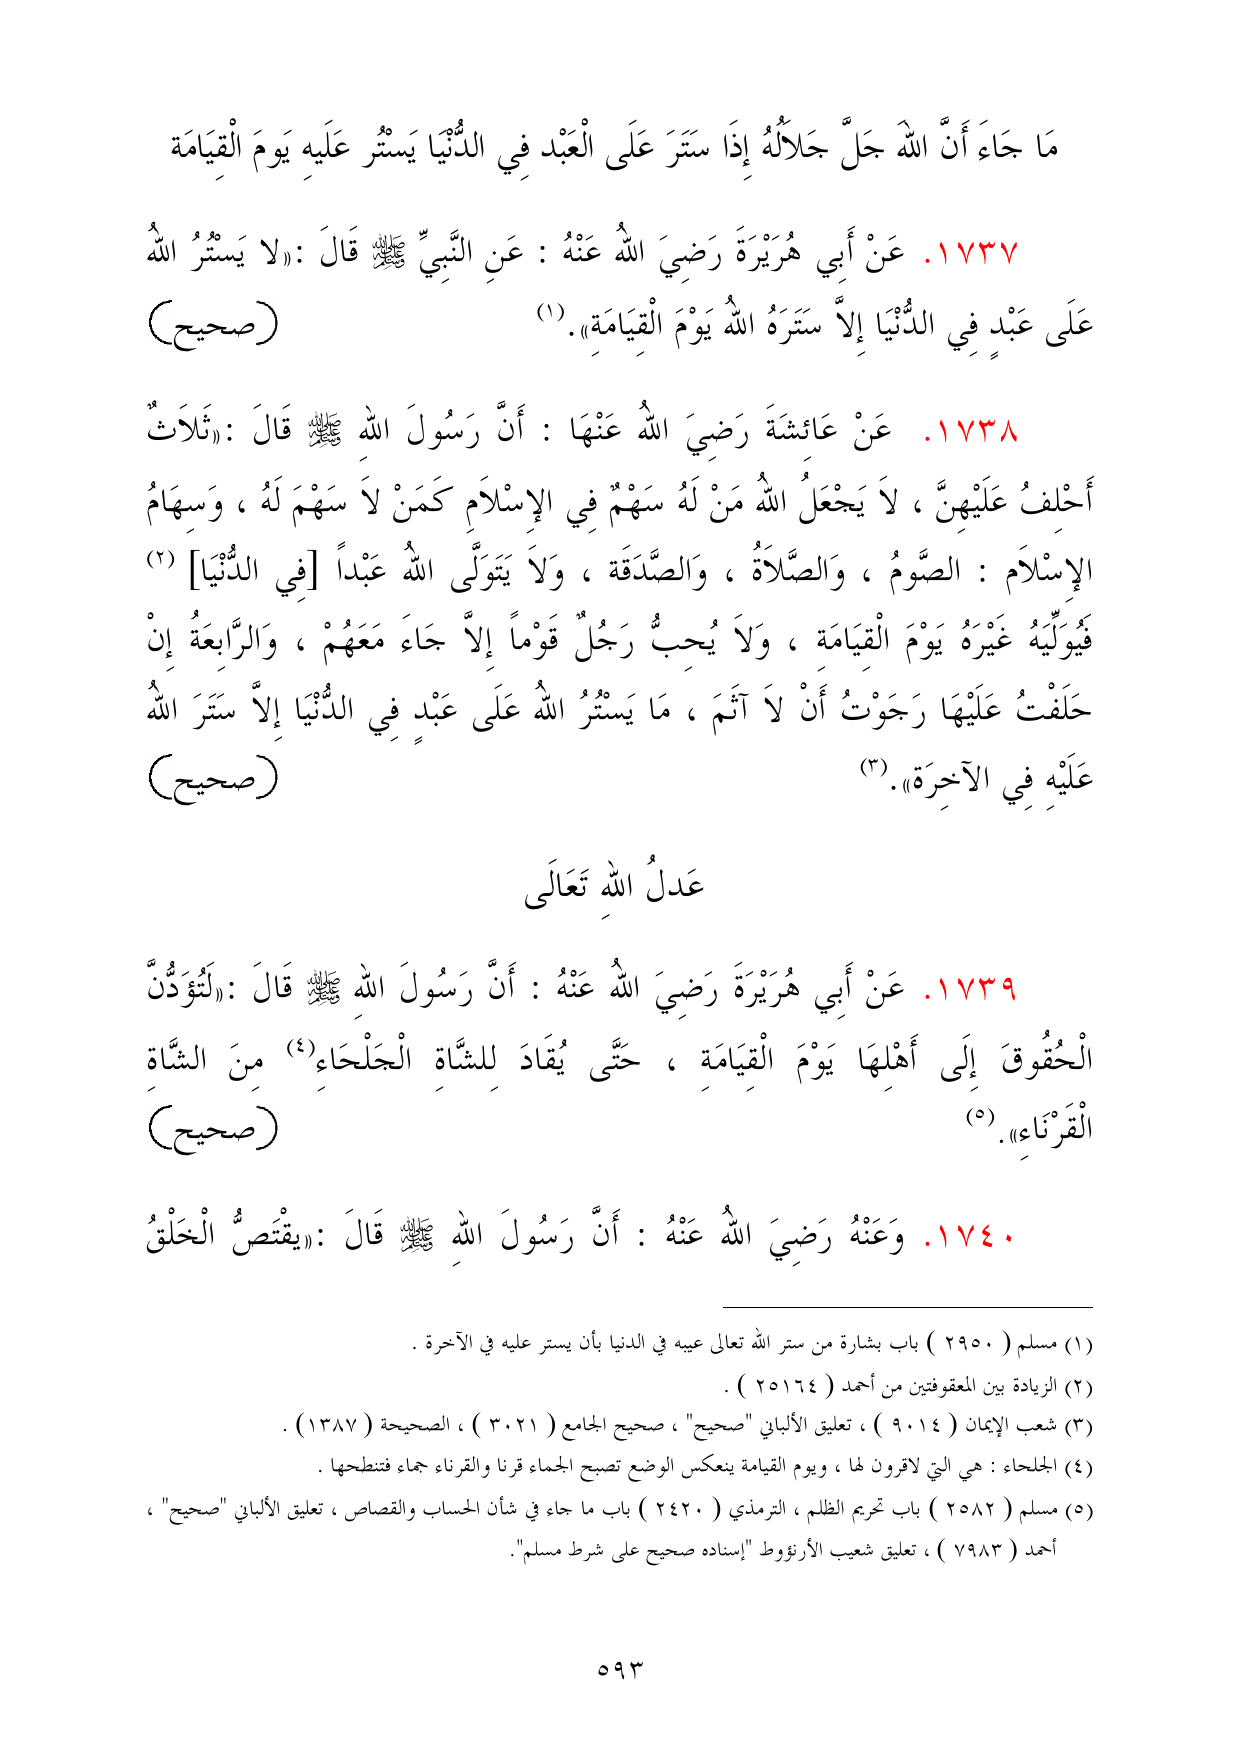 مَا جَاءَ أَنَّ اللهَ جَلَّ جَلاَلُهُ إِذَا سَتَرَ عَلَى الْعَبْد فِي الدُّنْيَا يَسْتُر عَلَيهِ يَومَ الْقِيَامَة
١٧٣٧. عَنْ أَبِي هُرَيْرَةَ رَضِيَ اللهُ عَنْهُ : عَنِ النَّبِيِّ ﷺ قَالَ :«لا يَسْتُرُ اللهُ
عَلَى عَبْدٍ فِي الدُّنْيَا إِلاَّ سَتَرَهُ اللهُ يَوْمَ الْقِيَامَةِ».(١) (صحيح)
١٧٣٨. عَنْ عَائِشَةَ رَضِيَ اللهُ عَنْهَا : أَنَّ رَسُولَ اللهِ ﷺ قَالَ :«ثَلاَثٌ
أَحْلِفُ عَلَيْهِنَّ ، لاَ يَجْعَلُ اللهُ مَنْ لَهُ سَهْمٌ فِي الإِسْلاَمِ كَمَنْ لاَ سَهْمَ لَهُ ، وَسِهَامُ
الإِسْلاَم : الصَّومُ ، وَالصَّلاَةُ ، وَالصَّدَقَة ، وَلاَ يَتَوَلَّى اللهُ عَبْداً [فِي الدُّنْيَا] (٢)
فَيُوَلِّيَهُ غَيْرَهُ يَوْمَ الْقِيَامَةِ ، وَلاَ يُحِبُّ رَجُلٌ قَوْماً إِلاَّ جَاءَ مَعَهُمْ ، وَالرَّابِعَةُ إِنْ
حَلَفْتُ عَلَيْهَا رَجَوْتُ أَنْ لاَ آثَمَ ، مَا يَسْتُرُ اللهُ عَلَى عَبْدٍ فِي الدُّنْيَا إِلاَّ سَتَرَ اللهُ
عَلَيْهِ فِي الآخِرَة».(٣) (صحيح)
عَدلُ اللهِ تَعَالَى
١٧٣٩. عَنْ أَبِي هُرَيْرَةَ رَضِيَ اللهُ عَنْهُ : أَنَّ رَسُولَ اللهِ ﷺ قَالَ :«لَتُؤَدُّنَّ
الْحُقُوقَ إِلَى أَهْلِهَا يَوْمَ الْقِيَامَةِ ، حَتَّى يُقَادَ لِلشَّاةِ الْجَلْحَاءِ(٤) مِنَ الشَّاةِ
الْقَرْنَاءِ».(٥) (صحيح)
١٧٤٠. وَعَنْهُ رَضِيَ اللهُ عَنْهُ : أَنَّ رَسُولَ اللهِ ﷺ قَالَ :«يقْتَصُّ الْخَلْقُ
(١) مسلم ( ٢٩٥٠ ) باب بشارة من ستر الله تعالى عيبه في الدنيا بأن يستر عليه في الآخرة .
(٢) الزيادة بين المعقوفتين من أحمد ( ٢٥١٦٤ ) .
(٣) شعب الإيمان ( ٩٠١٤ ) ، تعليق الألباني "صحيح" ، صحيح الجامع ( ٣٠٢١ ) ، الصحيحة ( ١٣٨٧) .
(٤) الجلحاء : هي التي لاقرون لها ، ويوم القيامة ينعكس الوضع تصبح الجماء قرنا والقرناء جماء فتنطحها .
(٥) مسلم ( ٢٥٨٢ ) باب تحريم الظلم ، الترمذي ( ٢٤٢٠ ) باب ما جاء في شأن الحساب والقصاص ، تعليق الألباني "صحيح" ،
أحمد ( ٧٩٨٣ ) ، تعليق شعيب الأرنؤوط "إسناده صحيح على شرط مسلم".
٥٩٣